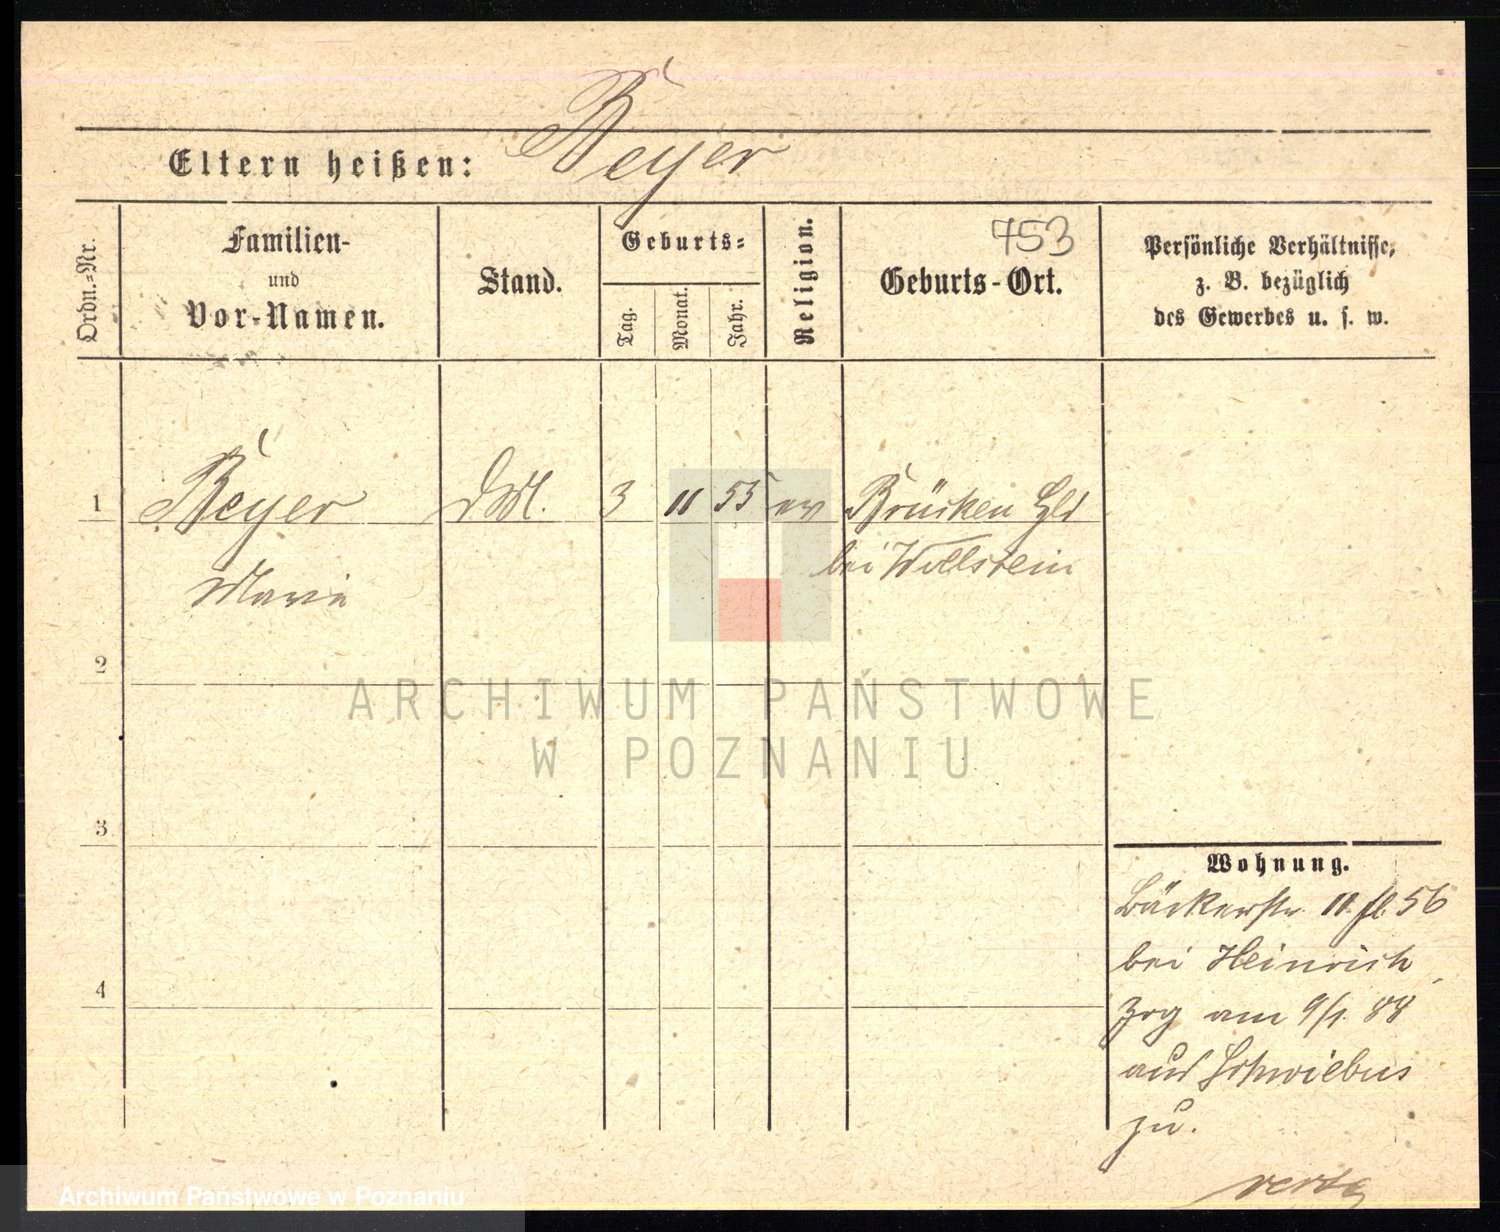 Beyer
Eltern heißen:
753
Ordn.-Nr.
Familien-
und
Vor-Namen.
Stand.
Geburts-
Tag.
Monat.
Jahr.
Religion.
Geburts-Ort.
Persönliche Verhältnisse,
z. B. bezüglich
des Gewerbes u. s. w.
1 Beyer 3 11 55 ev Brücken Hld
bei Wollstein
Marie
2
ARCHIWUM PAŃSTWOWE
W POZNANIU
3
Wohnung.
Bäckerstr. 11. fl. 56
bei Heinrich
4
Zog am 9/1. 88
aus Schwiebus
zu.
verte
Archiwum Państwowe w Poznaniu